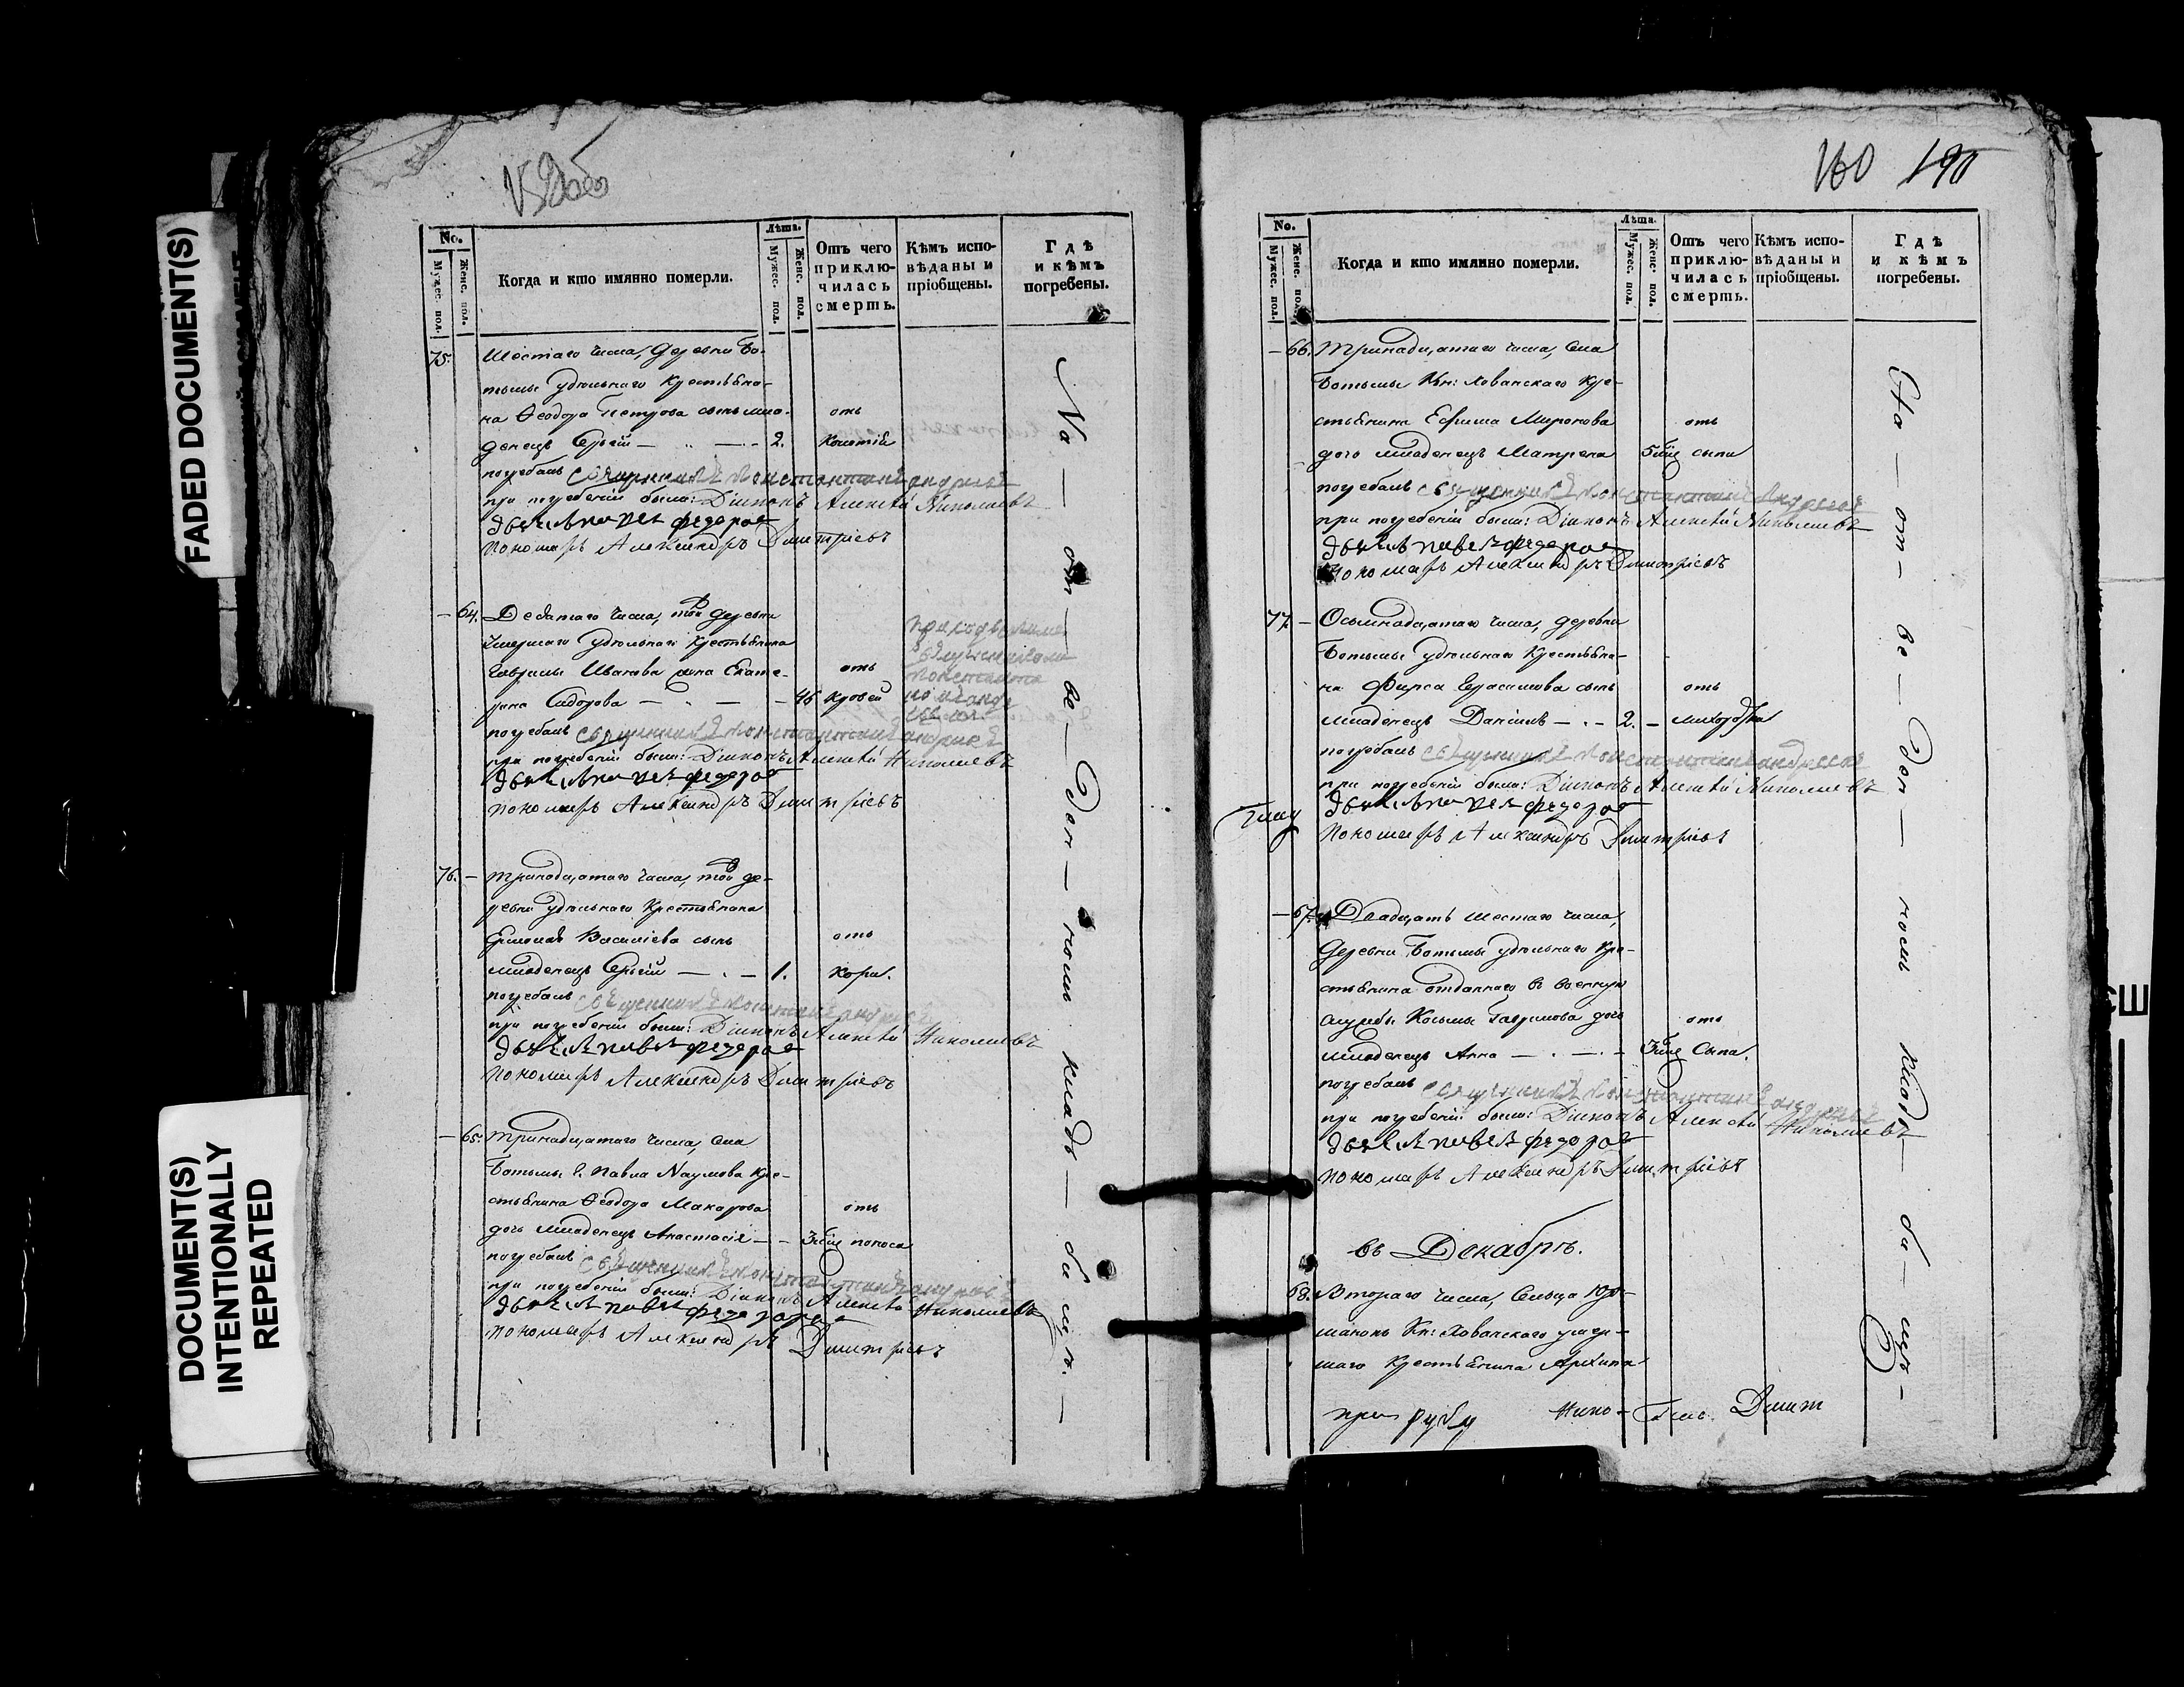 FADED DOCUMENT(S)
DOCUMENT(S)
INTENTIONALLY
REPEATED
No.
Мужес. пол.
Женс. пол.
Когда и кто имянно померли.
Лѣта.
Мужес. пол.
Женс. пол.
Отъ чего
приклю-
чилась
смерть.
Кѣмъ испо-
вѣданы и
пріобщены.
Гдѣ
и кѣмъ
погребены.
75. Шестаго числа, деревни Бо-
тьмы удѣльнаго крестьяни-
на Ѳеодора Петрова сынъ мла- отъ
денецъ Сергѣй — 2.
погребалъ священникъ Константинъ Андреевъ
при погребеніи были: Діаконъ Алексѣй Николаевъ
дьячекъ Павелъ Федоровъ
пономарь Александръ Димитріевъ
— 64. Девятаго числа, той деревни
умершаго удѣльнаго крестьянина
Гаврилы Иванова жена Екате- отъ
рина Сидорова — 46
погребалъ священникъ Константинъ Андреевъ
при погребеніи были: Діаконъ Алексѣй Николаевъ
дьячекъ Павелъ Федоровъ
пономарь Александръ Димитріевъ
76. — Тринадцатаго числа, той де-
ревни удѣльнаго крестьянина
Василіева сынъ отъ
младенецъ Сергѣй — 1. кори.
погребалъ священникъ Константинъ Андреевъ
при погребеніи были: Діаконъ Алексѣй Николаевъ
дьячекъ Павелъ Федоровъ
пономарь Александръ Димитріевъ
— 65. Тринадцатаго числа, села
Ботьмы г. Павла Наумова кре-
стьянина Ѳеодора Макарова отъ
дочь младенецъ Анастасія — поноса
погребалъ священникъ Константинъ Андреевъ
при погребеніи были: Діаконъ Алексѣй Николаевъ
дьячекъ Павелъ Федоровъ
пономарь Александръ Димитріевъ
На — от — ве — ден — номъ кладъ — бищѣ. —
190
No.
Мужес. пол.
Женс. пол.
Когда и кто имянно померли.
Лѣта.
Мужес. пол.
Женс. пол.
Отъ чего
приклю-
чилась
смерть.
Кѣмъ испо-
вѣданы и
пріобщены.
Гдѣ
и кѣмъ
погребены.
— 66. Тринадцатаго числа, села
Ботьмы Кн: Хованскаго кре-
стьянина Ефима Миронова отъ
дочь младенецъ Матрена сыпи
погребалъ священникъ Константинъ Андреевъ
при погребеніи были: Діаконъ Алексѣй Николаевъ
дьячекъ Павелъ Федоровъ
пономарь Александръ Димитріевъ
77. — Осьмнадцатаго числа, деревни
Ботьмы удѣльнаго крестьяни-
на Фирса Герасимова сынъ отъ
младенецъ Даніилъ — 2. —
погребалъ священникъ Константинъ Андреевъ
при погребеніи были: Діаконъ Алексѣй Николаевъ
дьячекъ Павелъ Федоровъ
пономарь Александръ Димитріевъ
— 67. Двадцать шестаго числа,
деревни Ботьмы удѣльнаго кре-
стьянина отданнаго въ военную
службу Косьмы Гаврилова дочь отъ
младенецъ Анна — сыпи.
погребалъ священникъ Константинъ Андреевъ
при погребеніи были: Діаконъ Алексѣй Николаевъ
дьячекъ Павелъ Федоровъ
пономарь Александръ Димитріевъ
въ Декабрѣ.
68. Втораго числа, сельца
Кн: Хованскаго умер-
шаго крестьянина Архипа
Димит
На — от — ве — ден — номъ кладъ — би — щѣ —